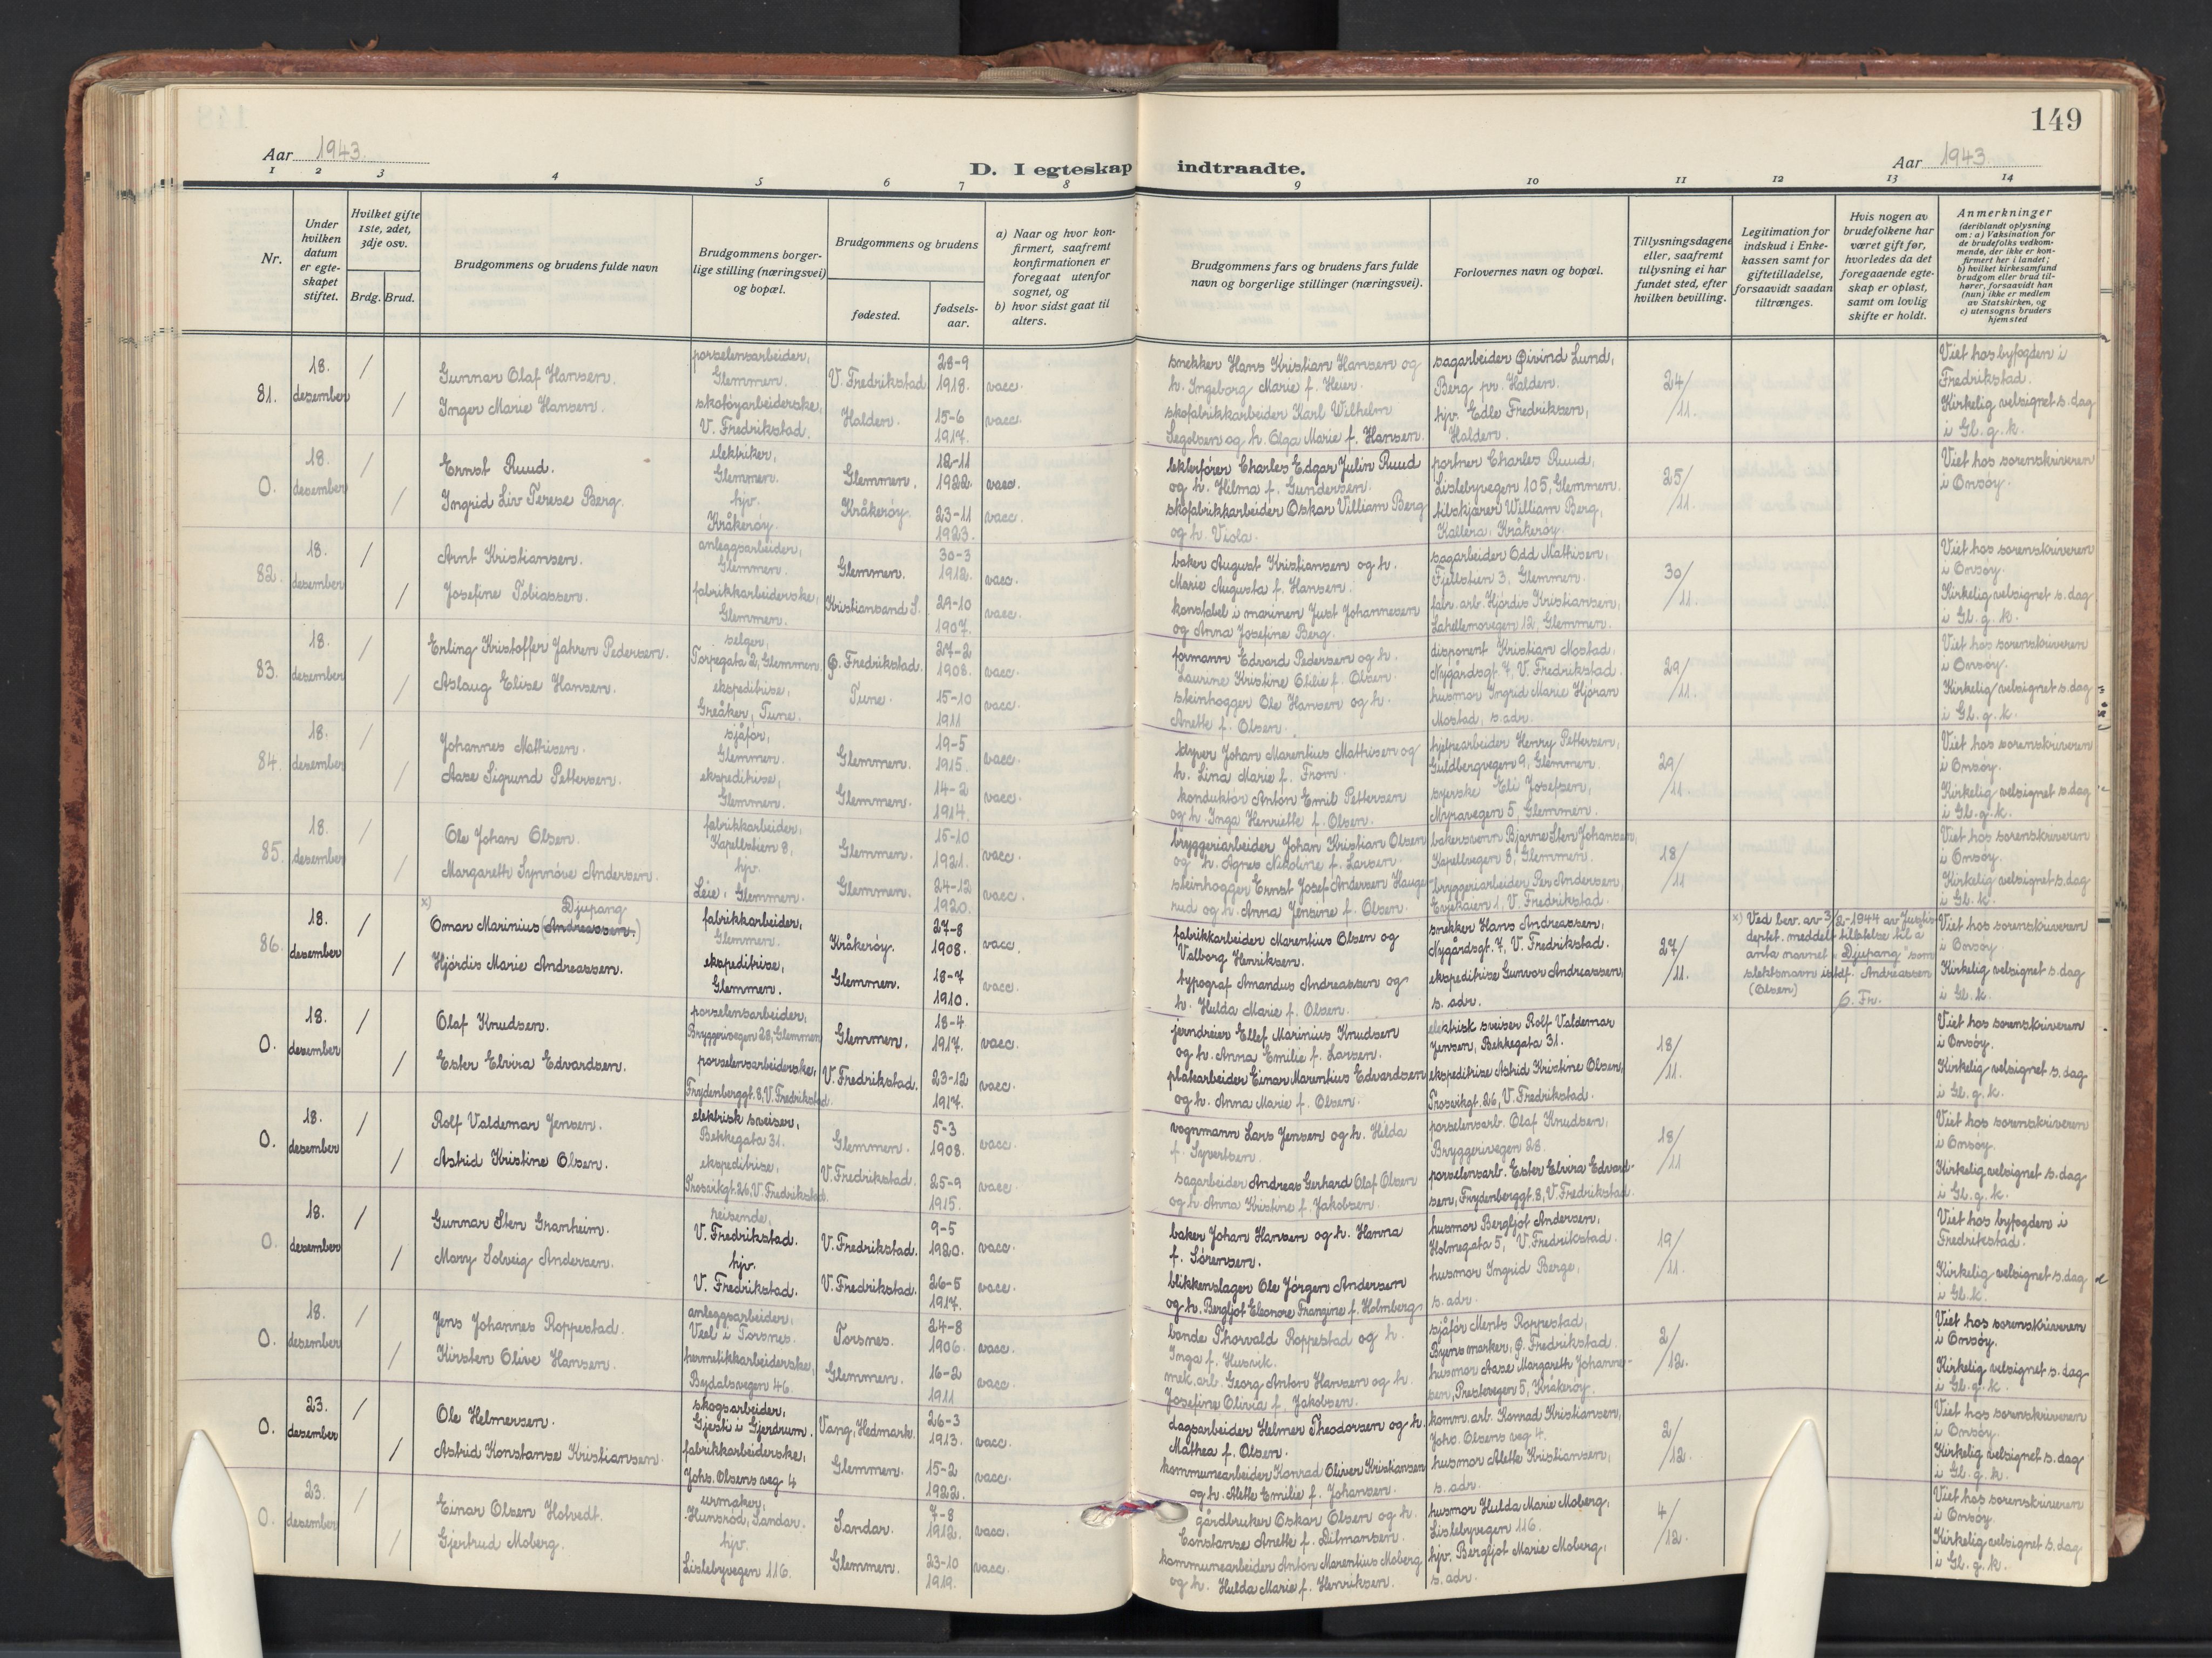 149
Aar 1943.
D. I egteskap indtraadte.
Aar 1943
1 2 3 4 5 6 7 8 9 10 11 12 13 14
Nr.
Under hvilken datum er egteskapet stiftet.
Hvilket gifte 1ste, 2det, 3dje osv.
Brdg. Brud.
Brudgommens og brudens fulde navn
Brudgommens borgerlige stilling (næringsvei) og bopæl.
Brudgommens og brudens
fødested.
fødselsaar.
a) Naar og hvor konfirmert, saafremt konfirmationen er foregaat utenfor sognet, og
b) hvor sidst gaat til alters.
Brudgommens fars og brudens fars fulde navn og borgerlige stillinger (næringsvei).
Forlovernes navn og bopæl.
Tillysningsdagene eller, saafremt tillysning ei har fundet sted, efter hvilken bevilling.
Legitimation for indskud i Enkekassen samt for giftetilladelse, forsaavidt saadan tiltrænges.
Hvis nogen av brudefolkene har været gift før, hvorledes da det foregaaende egteskap er opløst, samt om lovlig skifte er holdt.
Anmerkninger (deriblandt oplysning om: a) Vaksination for de brudefolks vedkommende, der ikke er konfirmert her i landet; b) hvilket kirkesamfund brudgom eller brud tilhører, forsaavidt han (hun) ikke er medlem av Statskirken, og c) utensogns bruders hjemsted
81. 18. desember / Gunnar Olaf Hansen. porselensarbeider, Glemmen. V. Fredrikstad 28-9 1918. vacc. snekker Hans Kristian Hansen og h. Ingeborg Marie f. Heier. sagarbeider Øivind Lund, Berg pr. Halden. 24/11. Viet hos byfogden i Fredrikstad.
/ Inger Marie Hansen. skotøyarbeiderske, V. Fredrikstad. Halden. 15-6 1917. vacc. skofabrikkarbeider Karl Wilhelm Segolsen og h. Olga Marie f. Hansen. hjv. Edle Fredriksen, Halden. Kirkelig velsignet s. dag i Gl. g. k.
0. 18. desember / Ernst Ruud. elektriker, Glemmen. Glemmen. 12-11 1922. vacc. Charles Edgar Julin Ruud og h. Hilma f. Gundersen. portner Charles Ruud, Lislebyvegen 105, Glemmen. 25/11. Viet hos sorenskriveren i Onsøy.
/ Ingrid Liv Terese Berg. hjv. Kråkerøy. Kråkerøy. 23-11 1923. vacc. skofabrikkarbeider Oskar William Berg og h. Viola. tilskjærer William Berg, Kallera, Kråkerøy.
82. 18. desember / Arnt Kristiansen. anleggsarbeider, Glemmen. Glemmen. 30-3 1912. vacc. baker August Kristiansen og h. Marie Augusta f. Hansen. sagarbeider Odd Mathisen, Fjellstien 3, Glemmen. 30/11. Viet hos sorenskriveren i Onsøy.
/ Josefine Tobiassen. fabrikkarbeiderske, Glemmen. Kristiansand S. 29-10 1907. vacc. konstabel i marinen Just Johannesen og Anna Josefine Berg. fabr. arb. Hjørdis Kristiansen, Lahellemovegen 12, Glemmen. Kirkelig velsignet s. dag i Gl. g. k.
83. 18. desember / Erling Kristoffer Jahren Pedersen. selger, Torpegata 2, Glemmen. Ø. Fredrikstad. 27-2 1908. vacc. formann Edvard Pedersen og h. Laurine Kristine Otilie f. Olsen. disponent Kristian Mostad, Nygårdsgt. 7, V. Fredrikstad. 29/11. Viet hos sorenskriveren i Onsøy.
/ Aslaug Elise Hansen. ekspeditrise, Greåker, Tune. Tune. 15-10 1911 vacc. steinhogger Ole Hansen og h. Anette f. Olsen. husmor Ingrid Marie Hjøran Mostad, s. adr. Kirkelig velsignet s. dag i Gl. g. k.
84. 18. desember / Johannes Mathisen. sjåfør, Glemmen. Glemmen. 19-5 1915. vacc. styver Johan Marentius Mathisen og h. Lina Marie f. From. hjelpearbeider Henry Pettersen, Guldbergvegen 9, Glemmen. 29/11. Viet hos sorenskriveren i Onsøy.
/ Aase Sigrund Pettersen. ekspeditrise, Glemmen. Glemmen. 14-2 1914. vacc. konduktør Anton Emil Pettersen og h. Inga Henriette f. Olsen. syerske Eli Josefsen, Myravegen 5, Glemmen. Kirkelig velsignet s. dag i Gl. g. k.
85. 18. desember / Ole Johan Olsen. fabrikkarbeider, Kapellstien 8, Glemmen. 15-10 1921. vacc. bryggeriarbeider Johan Kristian Olsen og h. Agnes Nikoline f. Larsen. bakersvenn Bjarne Sten Johansen, Kapellvegen 8, Glemmen. 18/11 Viet hos sorenskriveren i Onsøy.
/ Margareth Synnøve Andersen. hjv. Leie, Glemmen. Glemmen. 24-12 1920. vacc. steinhogger Ernst Josef Andersen Haugerud og h. Anna Jensine f. Olsen. bryggeriarbeider Per Andersen, Evjekaien 1, V. Fredrikstad. Kirkelig velsignet s. dag i Gl. k.
86. 18. desember / x) Omar Marinius (Andreassen.) Djupang fabrikkarbeider, Glemmen. Kråkerøy. 27-8 1908. vacc. fabrikkarbeider Marentius Olsen og Valborg Henriksen. snekker Hans Andreassen, Nygårdsgt. 7, V. Fredrikstad. 27/11. x) Ved bev. av 3/2-1944 av Justisdeptet. meddelt tillatelse til å anta navnet "Djupang" som slektsnavn istdf. Andreassen (Olsen) 6. Fr. Viet hos sorenskriveren i Onsøy.
/ Hjørdis Marie Andreassen. ekspeditrise, Glemmen. Glemmen. 18-7 1910. vacc. typograf Amandus Andreassen og h. Hulda Marie f. Olsen. ekspeditrise Gunvor Andreassen, s. adr. Kirkelig velsignet s. dag i Gl. k.
0. 18. desember / Olaf Knudsen. porselensarbeider, Bryggerivegen 28, Glemmen Glemmen. 18-4 1917. vacc. jerndreier Ellef Marinius Knudsen og h. Anna Emilie f. Larsen. elektrisk sveiser Rolf Valdemar Jensen, Bekkegata 31. 18/11. Viet hos sorenskriveren i Onsøy.
/ Ester Elvira Edvardsen. porselensarbeiderske, Frydenberggt. 8, V. Fredrikstad. V. Fredrikstad. 23-12 1917. vacc. platearbeider Einar Marentius Edvardsen og h. Anna Marie f. Olsen. ekspeditrise Astrid Kristine Olsen, Trosvikgt. 26, V. Fredrikstad. Kirkelig velsignet s. dag i Gl. g. k.
0. 18. desember / Rolf Valdemar Jensen. elektrisk sveiser, Bekkegata 31. Glemmen. 5-3 1908. vacc. vognmann Lars Jensen og h. Hilda f. Syvertsen. porselensarb. Olaf Knudsen, Bryggerivegen 28. 18/11 Viet hos sorenskriveren i Onsøy.
/ Astrid Kristine Olsen. ekspeditrise, Trosvikgt. 26, V. Fredrikstad. V. Fredrikstad. 25-9 1915. vacc. sagarbeider Andreas Gerhard Olaf Olsen og h. Anna Kristine f. Jakobsen. porselensarb. Ester Elvira Edvardsen, Frydenberggt. 8, V. Fredrikstad. Kirkelig velsignet s. dag i Gl. g. k.
0. 18. desember / Gunnar Sten Granheim. reisende, V. Fredrikstad. V. Fredrikstad. 9-5 1920. vacc. baker Johan Hansen og h. Hanna f. Sørensen. husmor Bergljot Andersen, Holmegata 5, V. Fredrikstad. 19/11. Viet hos byfogden i Fredrikstad.
/ Mary Solveig Andersen. hjv. V. Fredrikstad. V. Fredrikstad. 26-5 1917. vacc. blikkenslager Ole Jørgen Andersen og h. Bergljot Eleonore Franzine f. Holmberg husmor Ingrid Berge, s. adr. Kirkelig velsignet s. dag i Gl. k.
0. 18. desember / Jens Johannes Roppestad. anleggsarbeider, Veel i Torsnes. Torsnes. 24-8 1906. vacc. bonde Thorvald Roppestad og h. Inga f. Husvik. sjåfør Ments Roppestad, Byens marker, Ø. Fredrikstad. 2/12. Viet hos sorenskriveren i Onsøy.
/ Kirsten Olive Hansen. hermetikkarbeiderske, Bydalsvegen 46. Glemmen. 16-2 1911 vacc. mek. arb. Georg Anton Hansen og h. Josefine Olivia f. Jakobsen. husmor Aase Margareth Johannesen, Prestevegen 5, Kråkerøy. Kirkelig velsignet s. dag i Gl. g. k.
0. 23. desember / Ole Helmersen. skogsarbeider, Gjesti i Gjerdrum. Vang, Hedmark. 26-3 1913. vacc. dagsarbeider Helmer Theodorsen og h. Mathea f. Olsen. komm. arb. Konrad Kristiansen, Johs. Olsens veg 4. 2/12. Viet hos sorenskriveren i Onsøy.
/ Astrid Konstanse Kristiansen. fabrikkarbeiderske, Johs. Olsens veg 4 Glemmen. 15-2 1922. vacc. kommunearbeider Konrad Oliver Kristiansen og h. Alette Emilie f. Johansen. husmor Alette Kristiansen, s. adr. Kirkelig velsignet s. dag i Gl. g. k.
0. 23. desember / Einar Olsen Hotvedt. urmaker, Hunsrød, Sandar. Sandar. 7-8 1912. vacc. gårdbruker Oskar Olsen og h. Constanse Anette f. Ditmansen. husmor Hulda Marie Moberg, Lislebyvegen 116. 4/12. Viet hos sorenskriveren i Onsøy.
/ Gjertrud Moberg. hjv. Lislebyvegen 116. Glemmen. 23-10 1919. vacc. kommunearbeider Anton Marentius Moberg og h. Hulda Marie f. Henriksen. hjv. Bergljot Marie Moberg, s. adr. Kirkelig velsignet s. dag i Gl. g. k.